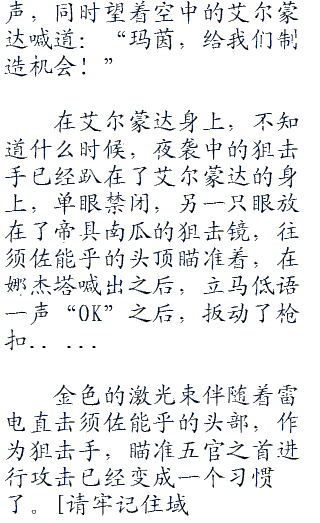 声，同时望着空中的艾尔蒙
达喊道：“玛茵，给我们制
造机会！”
在艾尔蒙达身上，不知
道什么时候，夜袭中的狙击
手已经趴在了艾尔蒙达的身
上，单眼禁闭，另一只眼放
在了帝具南瓜的狙击镜，往
须佐能乎的头顶瞄准着，在
娜杰塔喊出之后，立马低语
一声“OK”之后，扳动了枪
扣.. ...
金色的激光束伴随着雷
电直击须佐能乎的头部，作
为狙击手，瞄准五官之首进
行攻击已经变成一个习惯
了。[请牢记住域